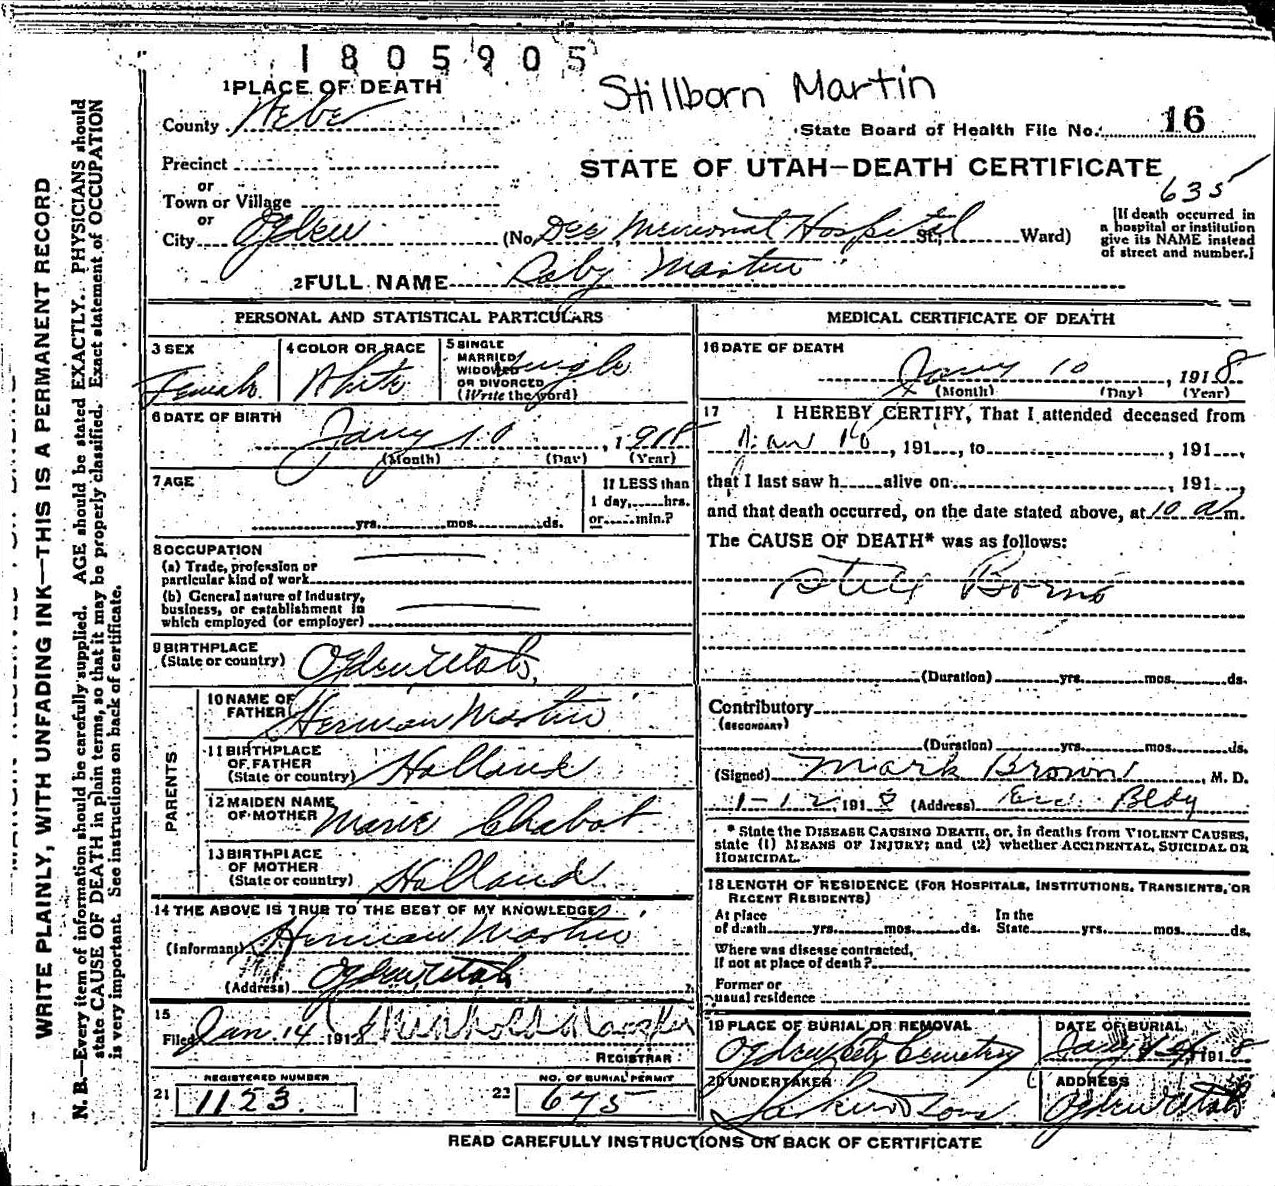 1805905
Stillborn Martin
1 PLACE OF DEATH
County Weber
State Board of Health File No. 16
Precinct
or
Town or Village
or
City Ogden
STATE OF UTAH—DEATH CERTIFICATE
635
(No. Dee Memorial Hospital St., Ward)
[If death occurred in
a hospital or institution
give its NAME instead
of street and number.]
2 FULL NAME Baby Martin
PERSONAL AND STATISTICAL PARTICULARS
3 SEX
Female
4 COLOR OR RACE
White
5 SINGLE
MARRIED
WIDOWED
OR DIVORCED
(Write the word)
Single
6 DATE OF BIRTH
Jany 10, 1918
(Month) (Day) (Year)
7 AGE
yrs. mos. ds.
If LESS than
1 day, hrs.
or min.?
8 OCCUPATION
(a) Trade, profession or
particular kind of work
(b) General nature of Industry,
business, or establishment in
which employed (or employer)
9 BIRTHPLACE
(State or country) Ogden Utah.
PARENTS
10 NAME OF
FATHER Herman Martin
11 BIRTHPLACE
OF FATHER
(State or country) Holland
12 MAIDEN NAME
OF MOTHER Marie Chabot
13 BIRTHPLACE
OF MOTHER
(State or country) Holland
14 THE ABOVE IS TRUE TO THE BEST OF MY KNOWLEDGE
(Informant) Herman Martin
(Address) Ogden Utah
15
Filed Jan. 14 1918
REGISTRAR
REGISTERED NUMBER
21 1123
NO. OF BURIAL PERMIT
22 675
MEDICAL CERTIFICATE OF DEATH
16 DATE OF DEATH
Jany 10, 1918
(Month) (Day) (Year)
17 I HEREBY CERTIFY, That I attended deceased from
Jan 10, 191 , to , 191 ,
that I last saw h alive on , 191 ,
and that death occurred, on the date stated above, at 10 a m.
The CAUSE OF DEATH* was as follows:
Still Born
(Duration) yrs. mos. ds.
Contributory
(SECONDARY)
(Duration) yrs. mos. ds.
(Signed) Mark Brown, M. D.
1-12 1918 (Address) Ecc Bldg
* State the DISEASE CAUSING DEATH, or, in deaths from VIOLENT CAUSES,
state (1) MEANS OF INJURY; and (2) whether ACCIDENTAL, SUICIDAL OR
HOMICIDAL.
18 LENGTH OF RESIDENCE (FOR HOSPITALS, INSTITUTIONS, TRANSIENTS, OR
RECENT RESIDENTS)
At place
of death yrs. mos. ds.
In the
State yrs. mos. ds.
Where was disease contracted,
If not at place of death?
Former or
usual residence
19 PLACE OF BURIAL OR REMOVAL
Ogden City Cemetery
DATE OF BURIAL
Jany 1918
20 UNDERTAKER
Larkin & Sons
ADDRESS
Ogden Utah
READ CAREFULLY INSTRUCTIONS ON BACK OF CERTIFICATE
WRITE PLAINLY, WITH UNFADING INK—THIS IS A PERMANENT RECORD
N. B.—Every item of information should be carefully supplied. AGE should be stated EXACTLY. PHYSICIANS should
state CAUSE OF DEATH in plain terms, so that it may be properly classified. Exact statement of OCCUPATION
is very important. See instructions on back of certificate.